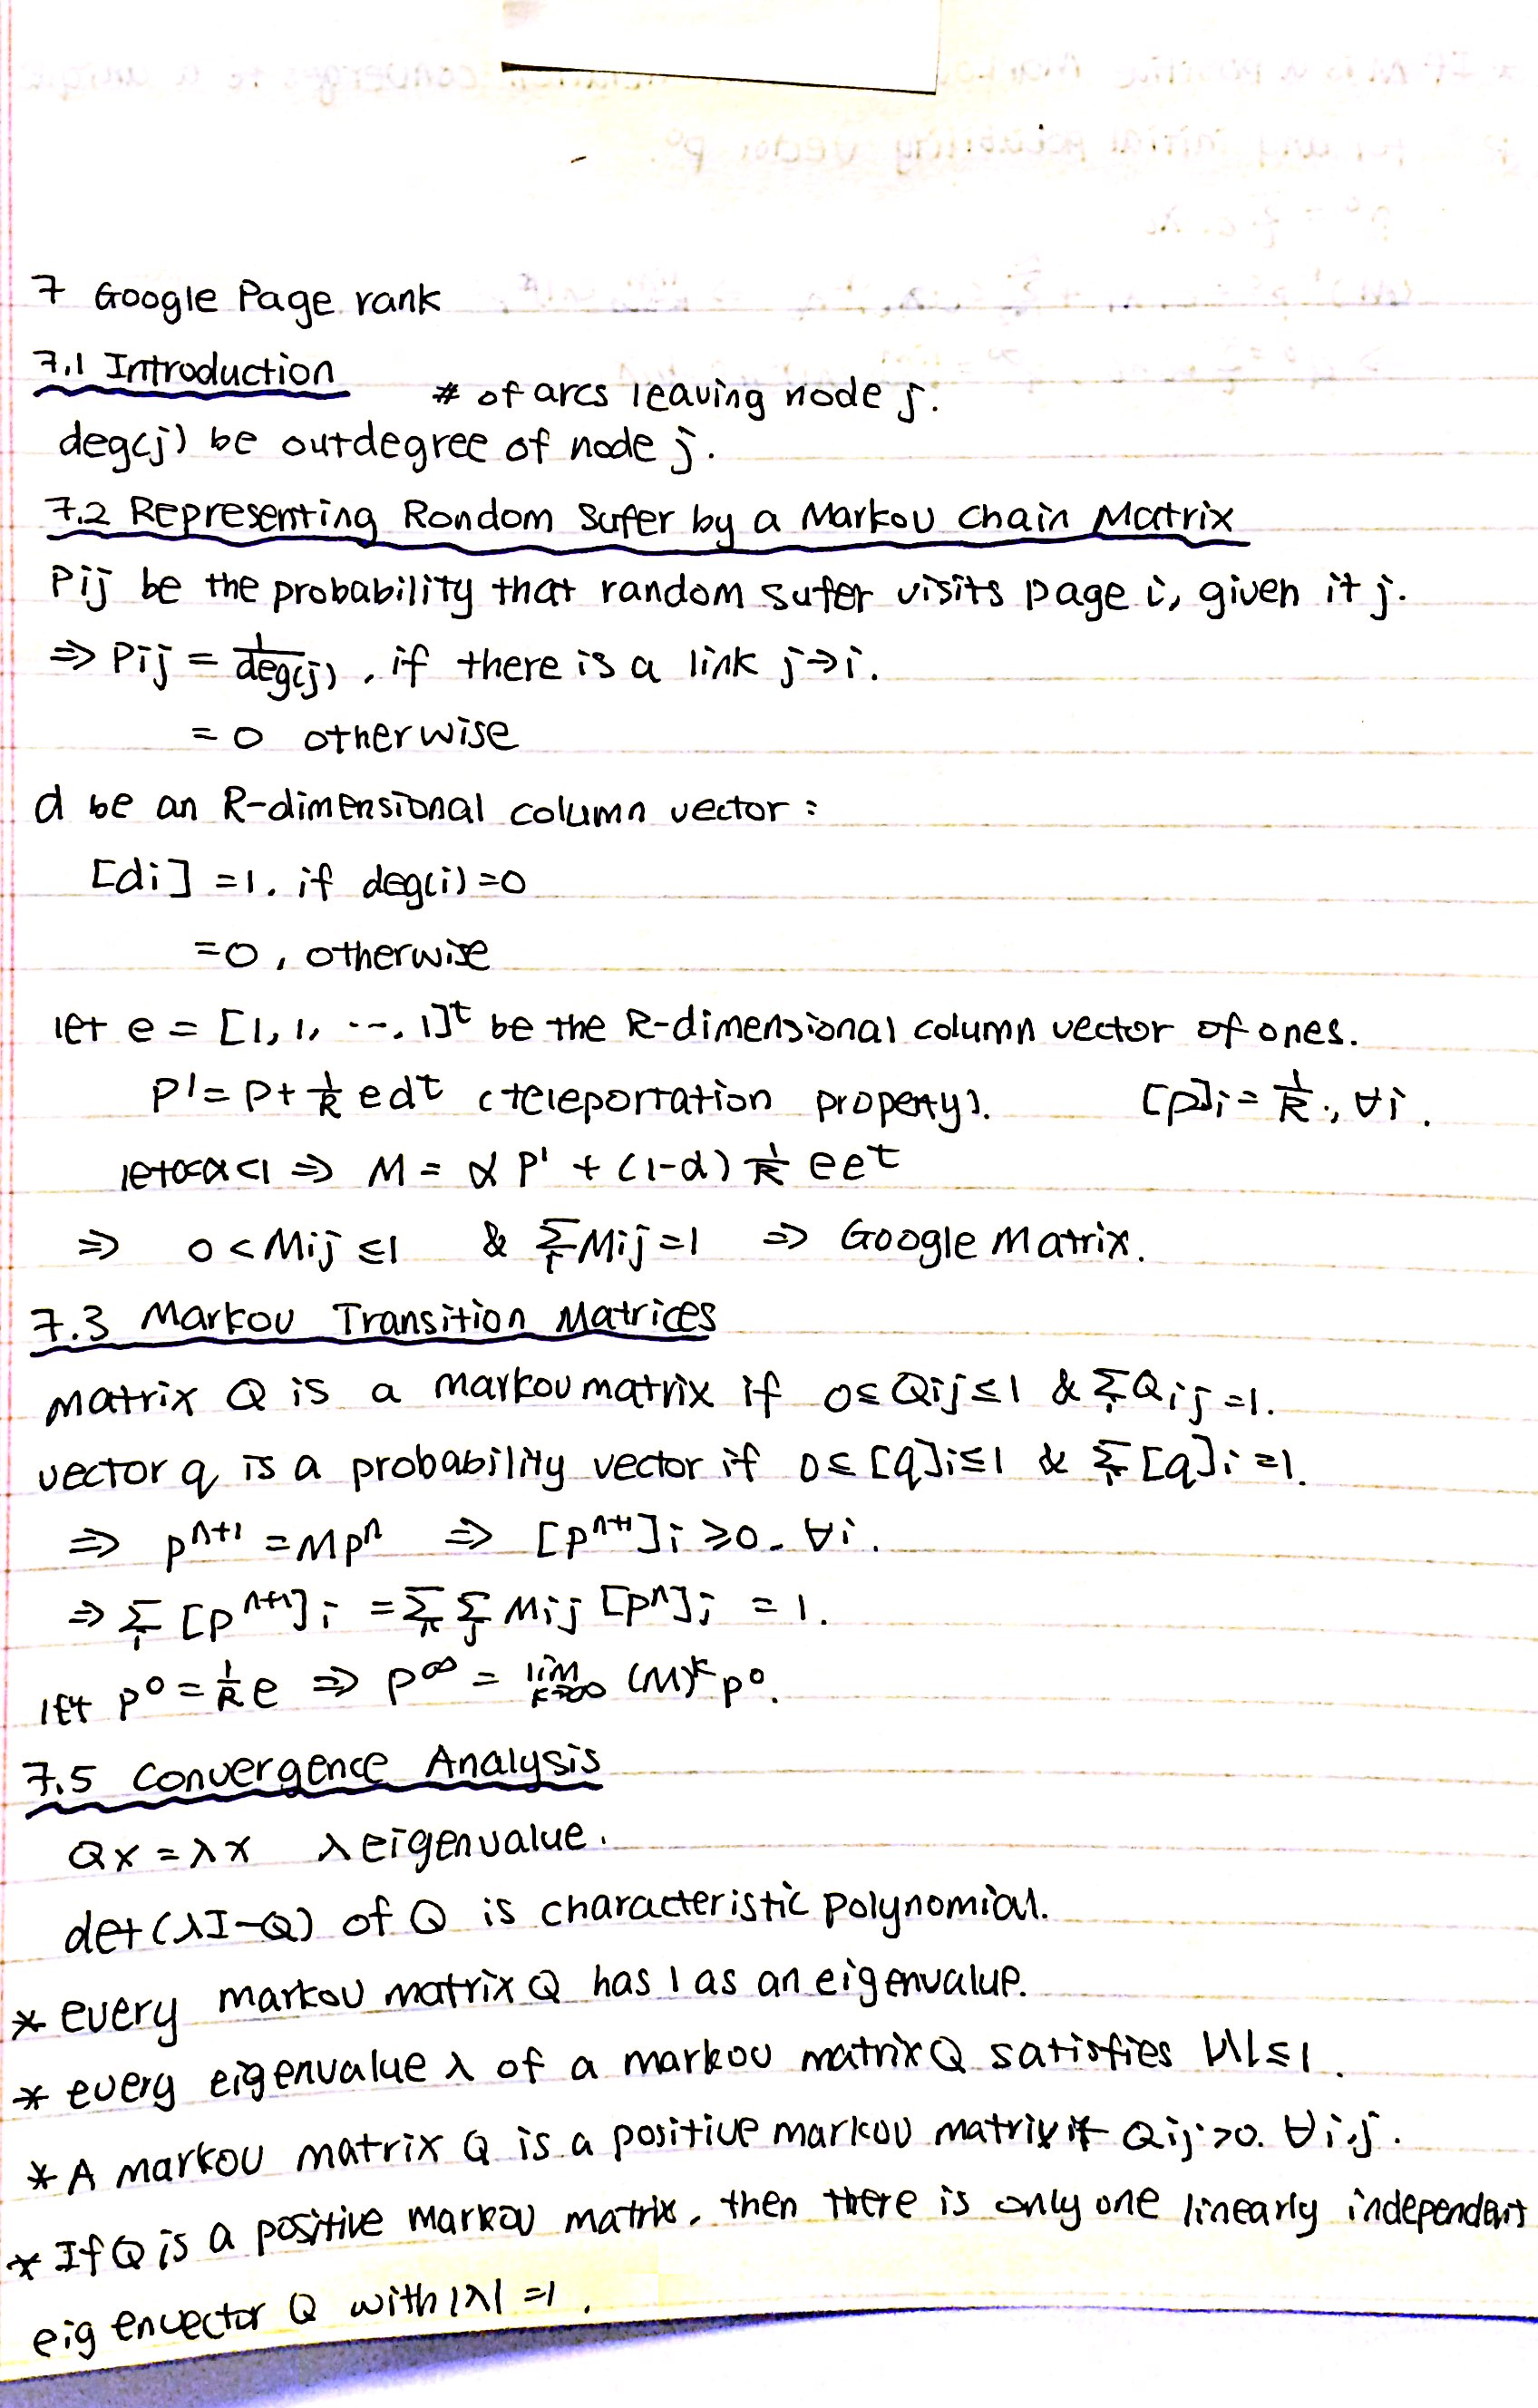 7 Google Page rank
7.1 Introduction
# of arcs leaving node j.
deg(j) be outdegree of node j.
7.2 Representing Rondom Sufer by a Markov Chain Matrix
Pij be the probability that random sufer visits page i, given it j.
⇒ Pij = 1/deg(j) , if there is a link j→i.
= 0 otherwise
d be an R-dimensional column vector :
[di] = 1. if deg(i) = 0
= 0 , otherwise
let e = [1, 1, ..., 1]ᵗ be the R-dimensional column vector of ones.
P' = P + 1/R edᵗ (teleportation property). [p]i = 1/R ., ∀i.
let 0<α<1 ⇒ M = α P' + (1-α) 1/R eeᵗ
⇒ 0 < Mij ≤ 1 & Σi Mij = 1 ⇒ Google Matrix.
7.3 Markov Transition Matrices
matrix Q is a markov matrix if 0 ≤ Qij ≤ 1 & Σi Qij = 1.
vector q is a probability vector if 0 ≤ [q]i ≤ 1 & Σi [q]i = 1.
⇒ pⁿ⁺¹ = Mpⁿ ⇒ [pⁿ⁺¹]i ≥ 0. ∀i.
⇒ Σi [pⁿ⁺¹]i = Σ Σj Mij [pⁿ]j = 1.
let p⁰ = 1/R e ⇒ p^∞ = lim k→∞ (M)ᵏ p⁰.
7.5 Convergence Analysis
Qx = λx λ eigenvalue.
det (λI-Q) of Q is characteristic polynomial.
* every markov matrix Q has 1 as an eigenvalue.
* every eigenvalue λ of a markov matrix Q satisfies |λ| ≤ 1.
* A markov matrix Q is a positive markov matrix if Qij > 0. ∀i,j.
* If Q is a positive markov matrix, then there is only one linearly independent
eigenvector Q with |λ| = 1.